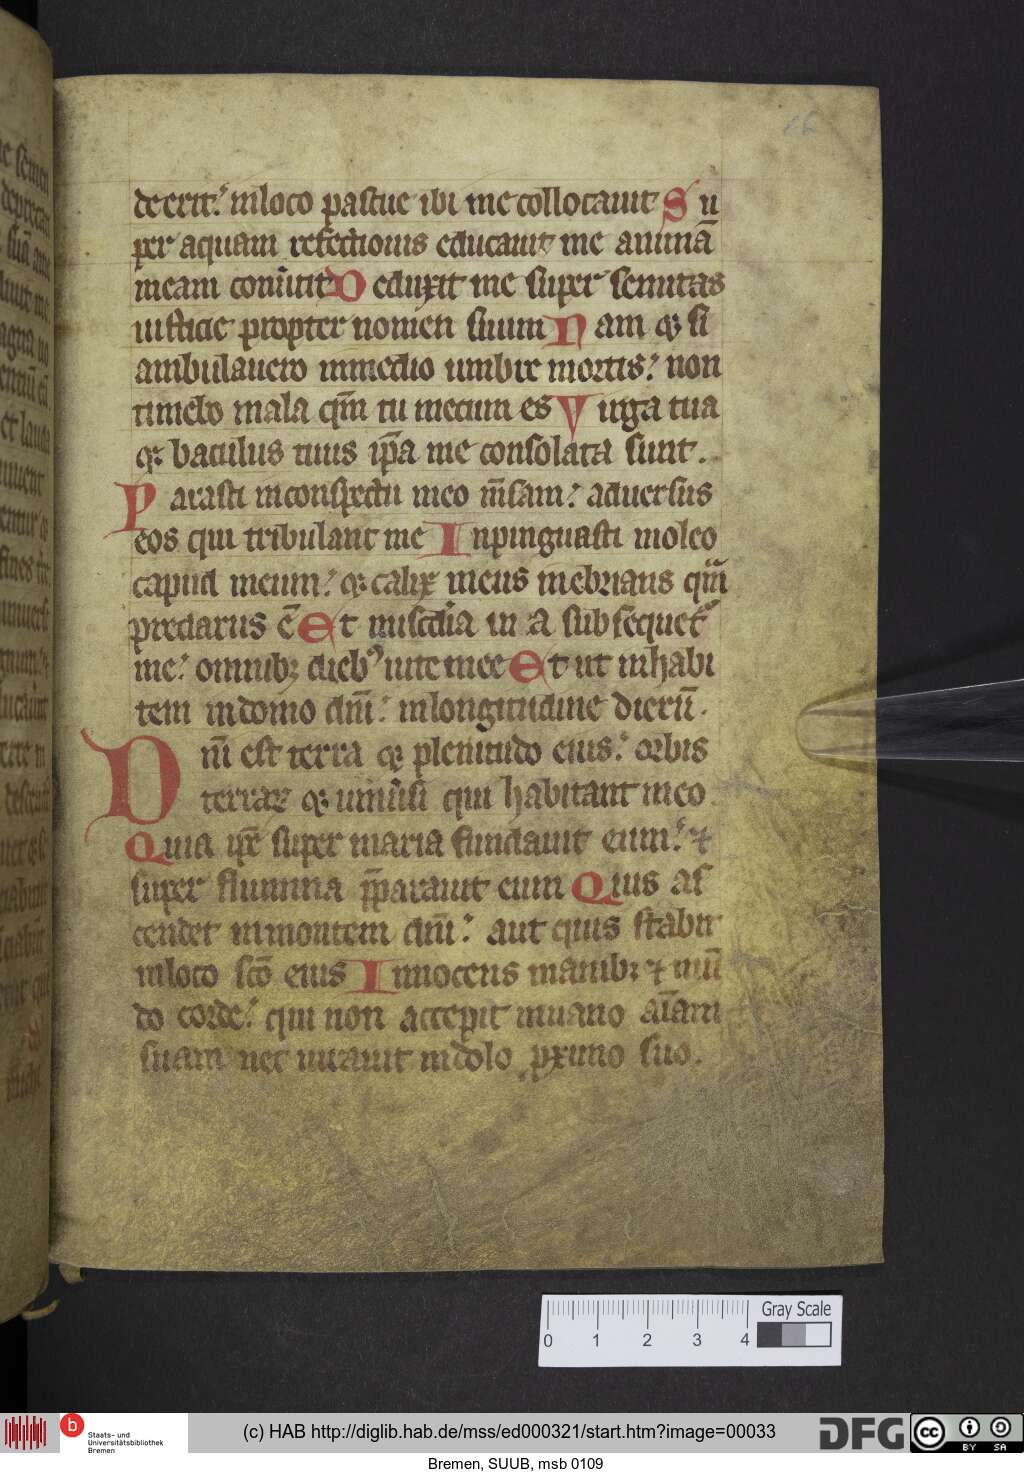 16
deerit: inloco pascue ibi me collocauit Su
per aquam refectionis educauit me animā
meam conūtit Deduxit me super semitas
iusticie propter nomen suum Nam ꝙ si
ambulauero inmedio umbre mortis: non
timebo mala qm̄ tu mecum es Virga tua
ꝙ baculus tuus ip̄a me consolata sunt.
Parasti inconspectu meo m̄sam: aduersus
eos qui tribulant me Inpinguasti inoleo
caput meum: ꝙ calix meus inebrians qm̄
preclarus ē Et miscdīa tu A subsequet᷑
me: omnibꝫ diebꝰ uite mee Et ut inhabi
tem indomo dnī: inlongitudine dierū.
Dnī est terra ꝙ plenitudo eius: orbis
terraꝝ ꝙ uniūsi qui habitant in eo
Quia ip̄e super maria fundauit eum: ⁊
super flumina p̄parauit eum Quis as
cendet inmontem dnī: aut quis stabit
inloco scō eius Innocens manibꝫ ⁊ mū
do corde: qui non accepit inuano aīam
suam nec iurauit indolo pximo suo.
0 1 2 3 4 Gray Scale
b Staats- und
Universitätsbibliothek
Bremen
(c) HAB http://diglib.hab.de/mss/ed000321/start.htm?image=00033
DFG
cc BY SA
Bremen, SUUB, msb 0109